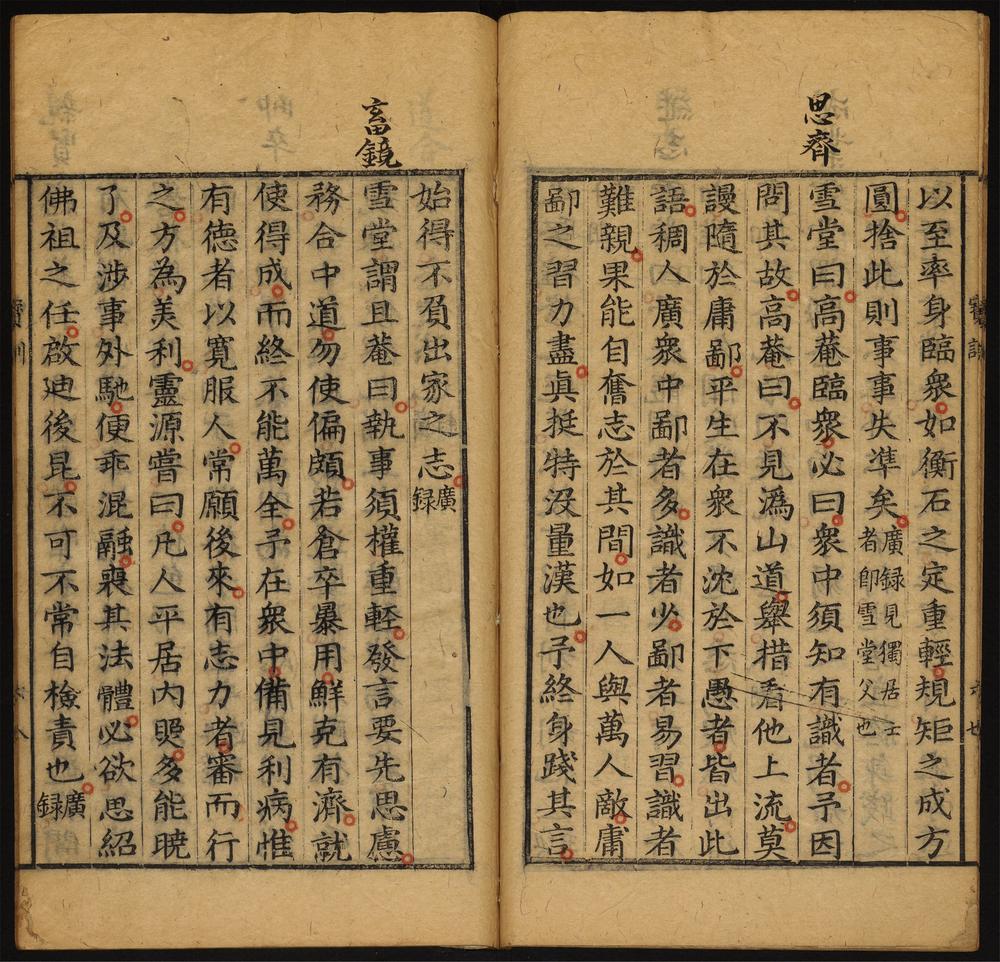 思齊
以至率身臨衆如衡石之定重輕規矩之成方
圓捨此則事事失準矣廣録見獨居士
者即雪堂父也
雪堂曰高菴臨衆必曰衆中須知有識者予因
問其故高菴曰不見溈山道舉措看他上流莫
謾隨於庸鄙平生在衆不沈於下愚者皆出此
語稠人廣衆中鄙者多識者少鄙者易習識者
難親果能自奮志於其間如一人與萬人敵庸
鄙之習力盡真挺特没量漢也予終身踐其言
畜鏡
始得不負出家之志廣
録
雪堂謂且菴曰執事須權重輕發言要先思慮
務合中道勿使偏頗若倉卒暴用鮮克有濟就
使得成而終不能萬全予在衆中備見利病惟
有德者以寬服人常願後來有志力者審而行
之方為美利靈源嘗曰凡人平居内照多能曉
了及涉事外馳便乖混融喪其法體必欲思紹
佛祖之任啟迪後昆不可不常自檢責也廣
録